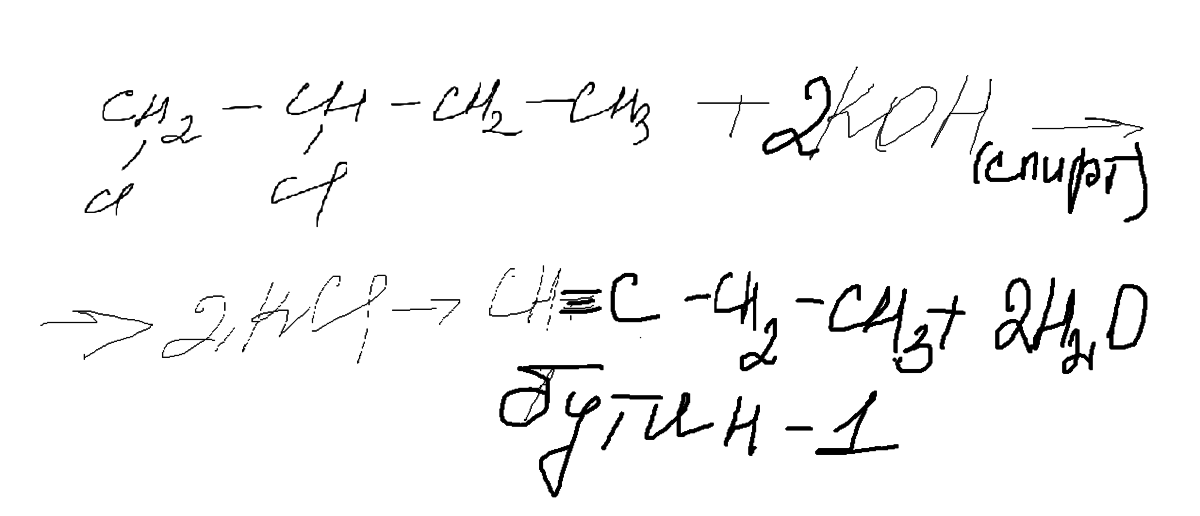 CH2 - CH - CH2 - CH3 + 2KOH →
Cl Cl (спирт)
→ 2KCl → CH≡C - CH2 - CH3 + 2H2O
бутин-1